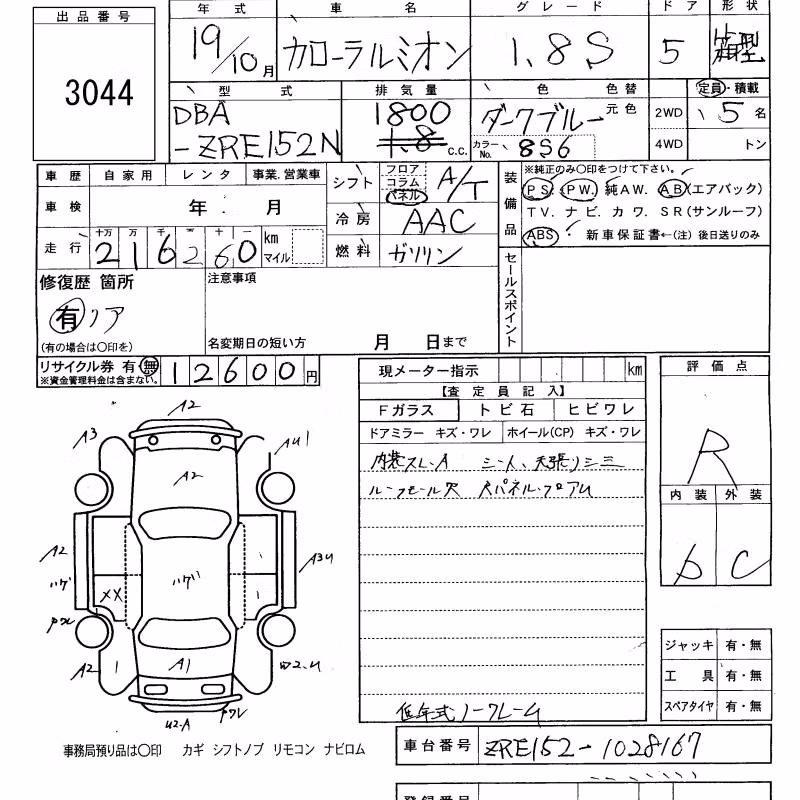 出品番号
3044
年式 車名 グレード ドア 形状
19/10月 カローラルミオン 1.8S 5 箱型
型式 排気量 色 色替 定員・積載
DBA
-ZRE152N
1800
1.8 C.C.
ダークブルー 元色
カラーNo. 8S6
2WD 5名
4WD トン
車歴 自家用 レンタ 事業.営業車
車検 年. 月
走行 十万 万 千 百 十 一
216260 km マイル
シフト フロア コラム パネル A/T
冷房 AAC
燃料 ガソリン
装備品
※純正のみ〇印をつけて下さい。
PS. PW. 純AW. AB(エアバック)
TV. ナビ. カワ. SR(サンルーフ)
ABS・ 新車保証書←(注)後日送りのみ
セールスポイント
修復歴 箇所
有 リア
(有の場合は〇印を)
注意事項
名変期日の短い方 月 日まで
リサイクル券 有 無
※資金管理料金は含まない。
12600円
現メーター指示 km
【査定員記入】
Fガラス トビ石 ヒビワレ
ドアミラー キズ・ワレ ホイール(CP) キズ・ワレ
内装スレ.A シート、天張りシミ
ルーフモール欠 Rパネル・フロアム
低年式ノークレーム
評価点
R
内装 外装
D C
ジャッキ 有・無
工具 有・無
スペアタイヤ 有・無
A2
A3
AU1
A2
A2
ハゲ
ハゲ
A3U
XX
ワレ
A2
A1
U2.A
ワレ
事務局預り品は〇印 カギ シフトノブ リモコン ナビロム
車台番号 ZRE152-1028167
登録番号